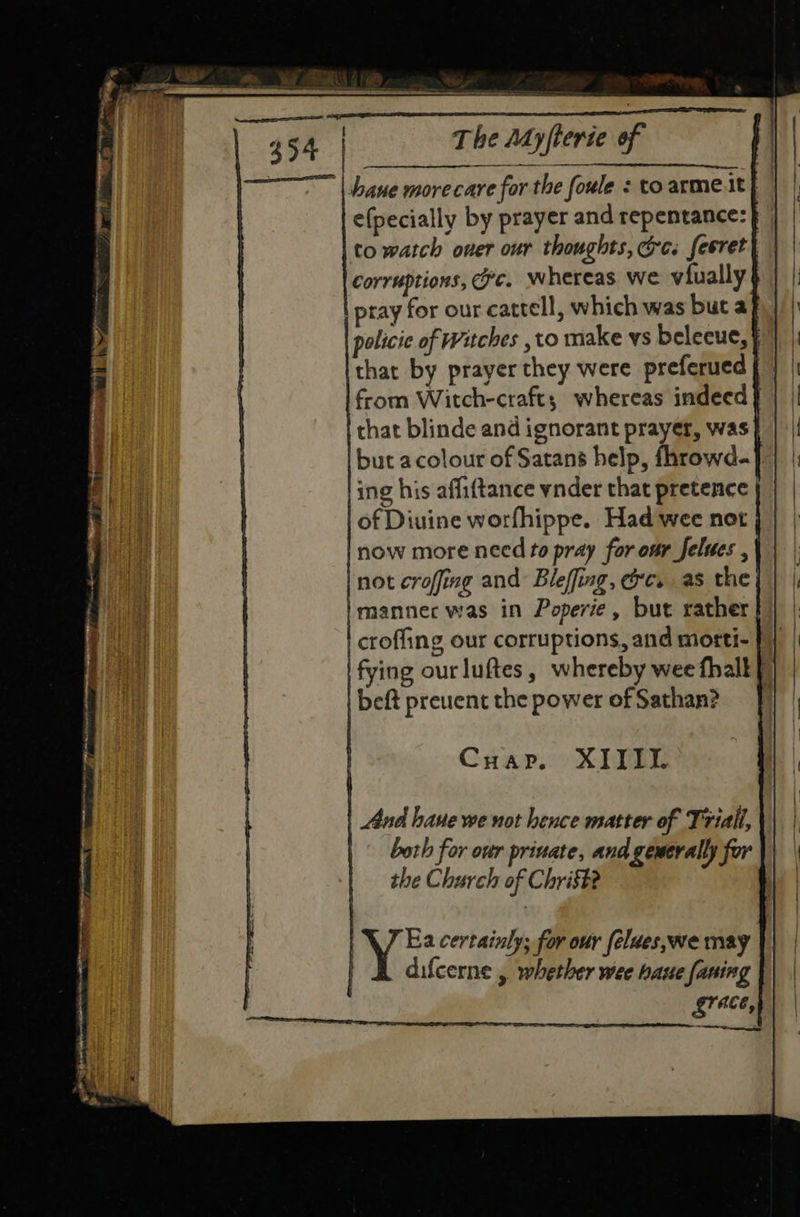 354 The Mysterie of
haue more care for the soule : to arme it
especially by prayer and repentance:
to watch ouer our thoughts, &c. secret
corruptions, &c. whereas we vsually
pray for our cattell, which was but a
policie of Witches , to make vs beleeue,
that by prayer they were preserued
from Witch-craft; whereas indeed
that blinde and ignorant prayer, was
but a colour of Satans help, shrowd-
ing his assistance vnder that pretence
of Diuine worshippe. Had wee not
now more need to pray for our selues ,
not crossing and Blessing, &c. as the
manner was in Poperie, but rather
crossing our corruptions, and morti-
fying our lustes, whereby wee shall
best preuent the power of Sathan?
CHAP. XIIII.
And haue we not hence matter of Triall,
both for our priuate, and generally for
the Church of Christ?
YEa certainly; for our selues, we may
discerne , whether wee haue sauing
grace,